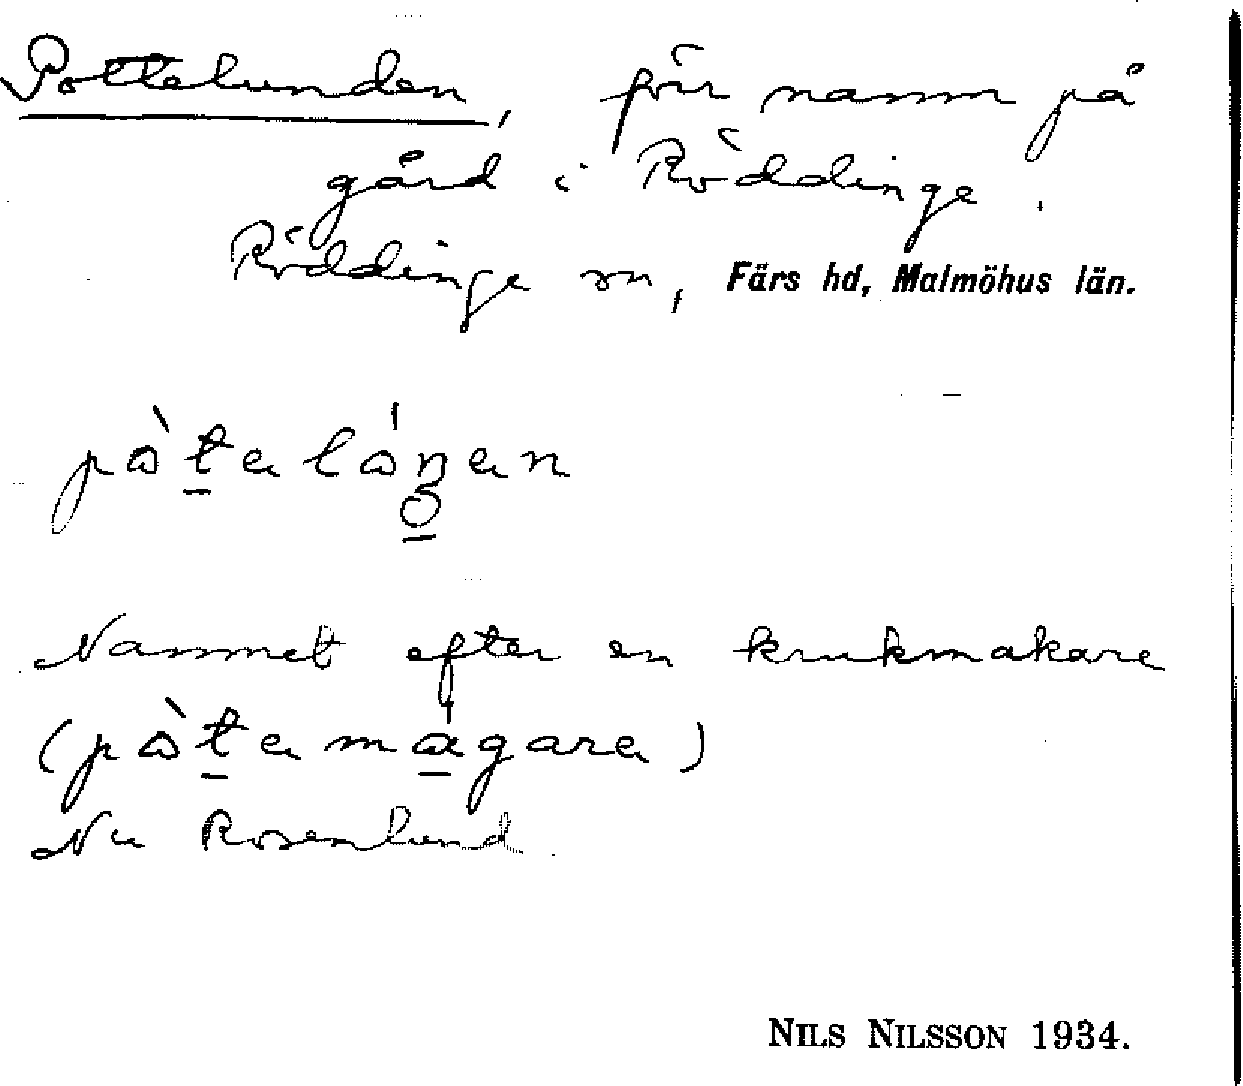 Pottelunden, förr namn på
gård i Röddinge.
Röddinge sn, Färs hd, Malmöhus län.
Namnet efter en krukmakare
Nu Rosenlund.
NILS NILSSON 1934.